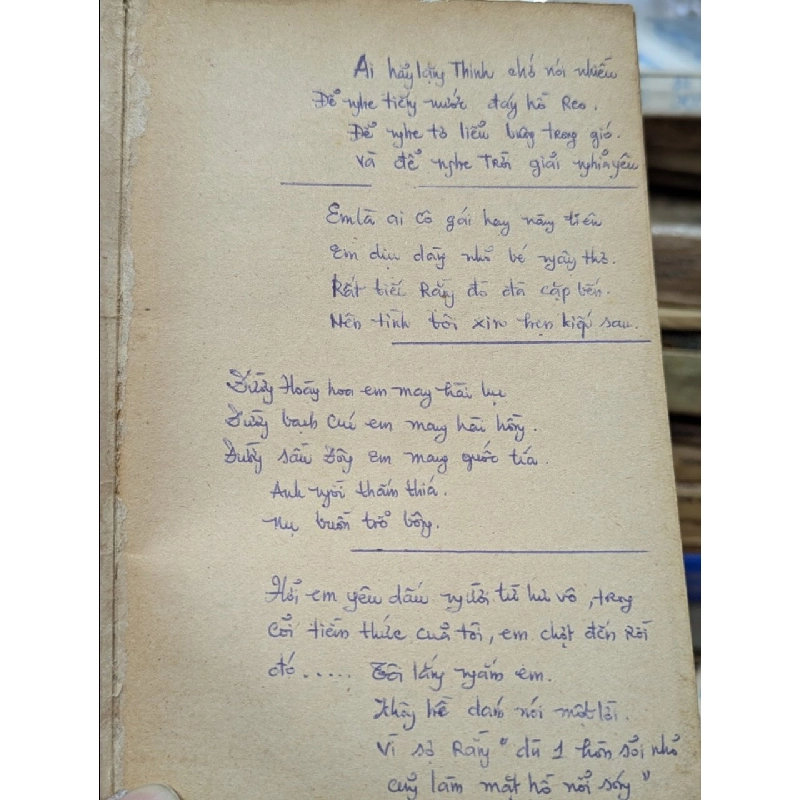 Ai hãy lặng Thinh chớ nói nhiều
Để nghe tiếng nước đáy hồ Reo.
Để nghe tơ liễu bung trong gió.
Và để nghe Trời giải nghĩa yêu
Em là ai cô gái hay nàng tiên
Em dịu dàng nhỏ bé ngây thơ.
Rất tiếc Rằng đò đã cặp bến.
Nên tình tôi xin hẹn kiếp sau.
Đường Hoàng hoa em mang hài lục
Đường bạch Cúc em mang hài hồng.
Đường sấu Đông em mang guốc tía.
Anh ngồi thấm thía.
Nụ buồn trổ bông.
Hỡi em yêu dấu người từ hư vô, trong
Cõi tiềm thức của tôi, em chợt đến Rồi
đó..... Tôi lặng ngắm em.
Không hề dám nói một lời.
Vì sợ Rằng "dù 1 hòn sỏi nhỏ
cũng làm mặt hồ nổi sóng"